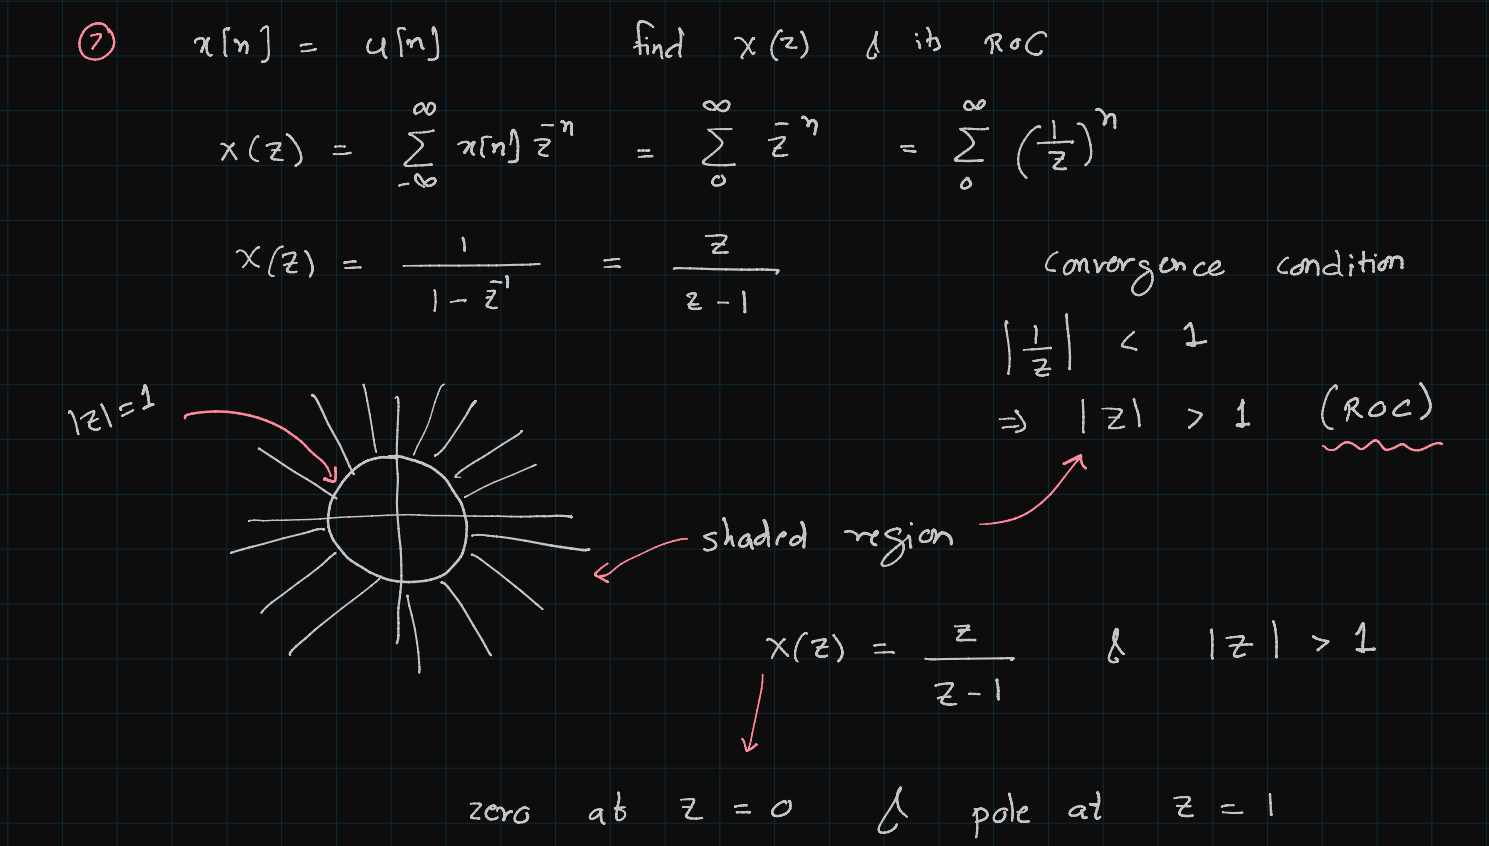 ② x[n] = u[n] find X(z) & its ROC
X(z) = ∞ Σ -∞ x[n] z⁻ⁿ = ∞ Σ 0 z⁻ⁿ = ∞ Σ 0 (1/z)ⁿ
X(z) = 1/(1 - z⁻¹) = z/(z - 1) convergence condition
|1/z| < 1
|z|=1 ⇒ |z| > 1 (ROC)
shaded region
X(z) = z/(z-1) & |z| > 1
zero at z = 0 & pole at z = 1